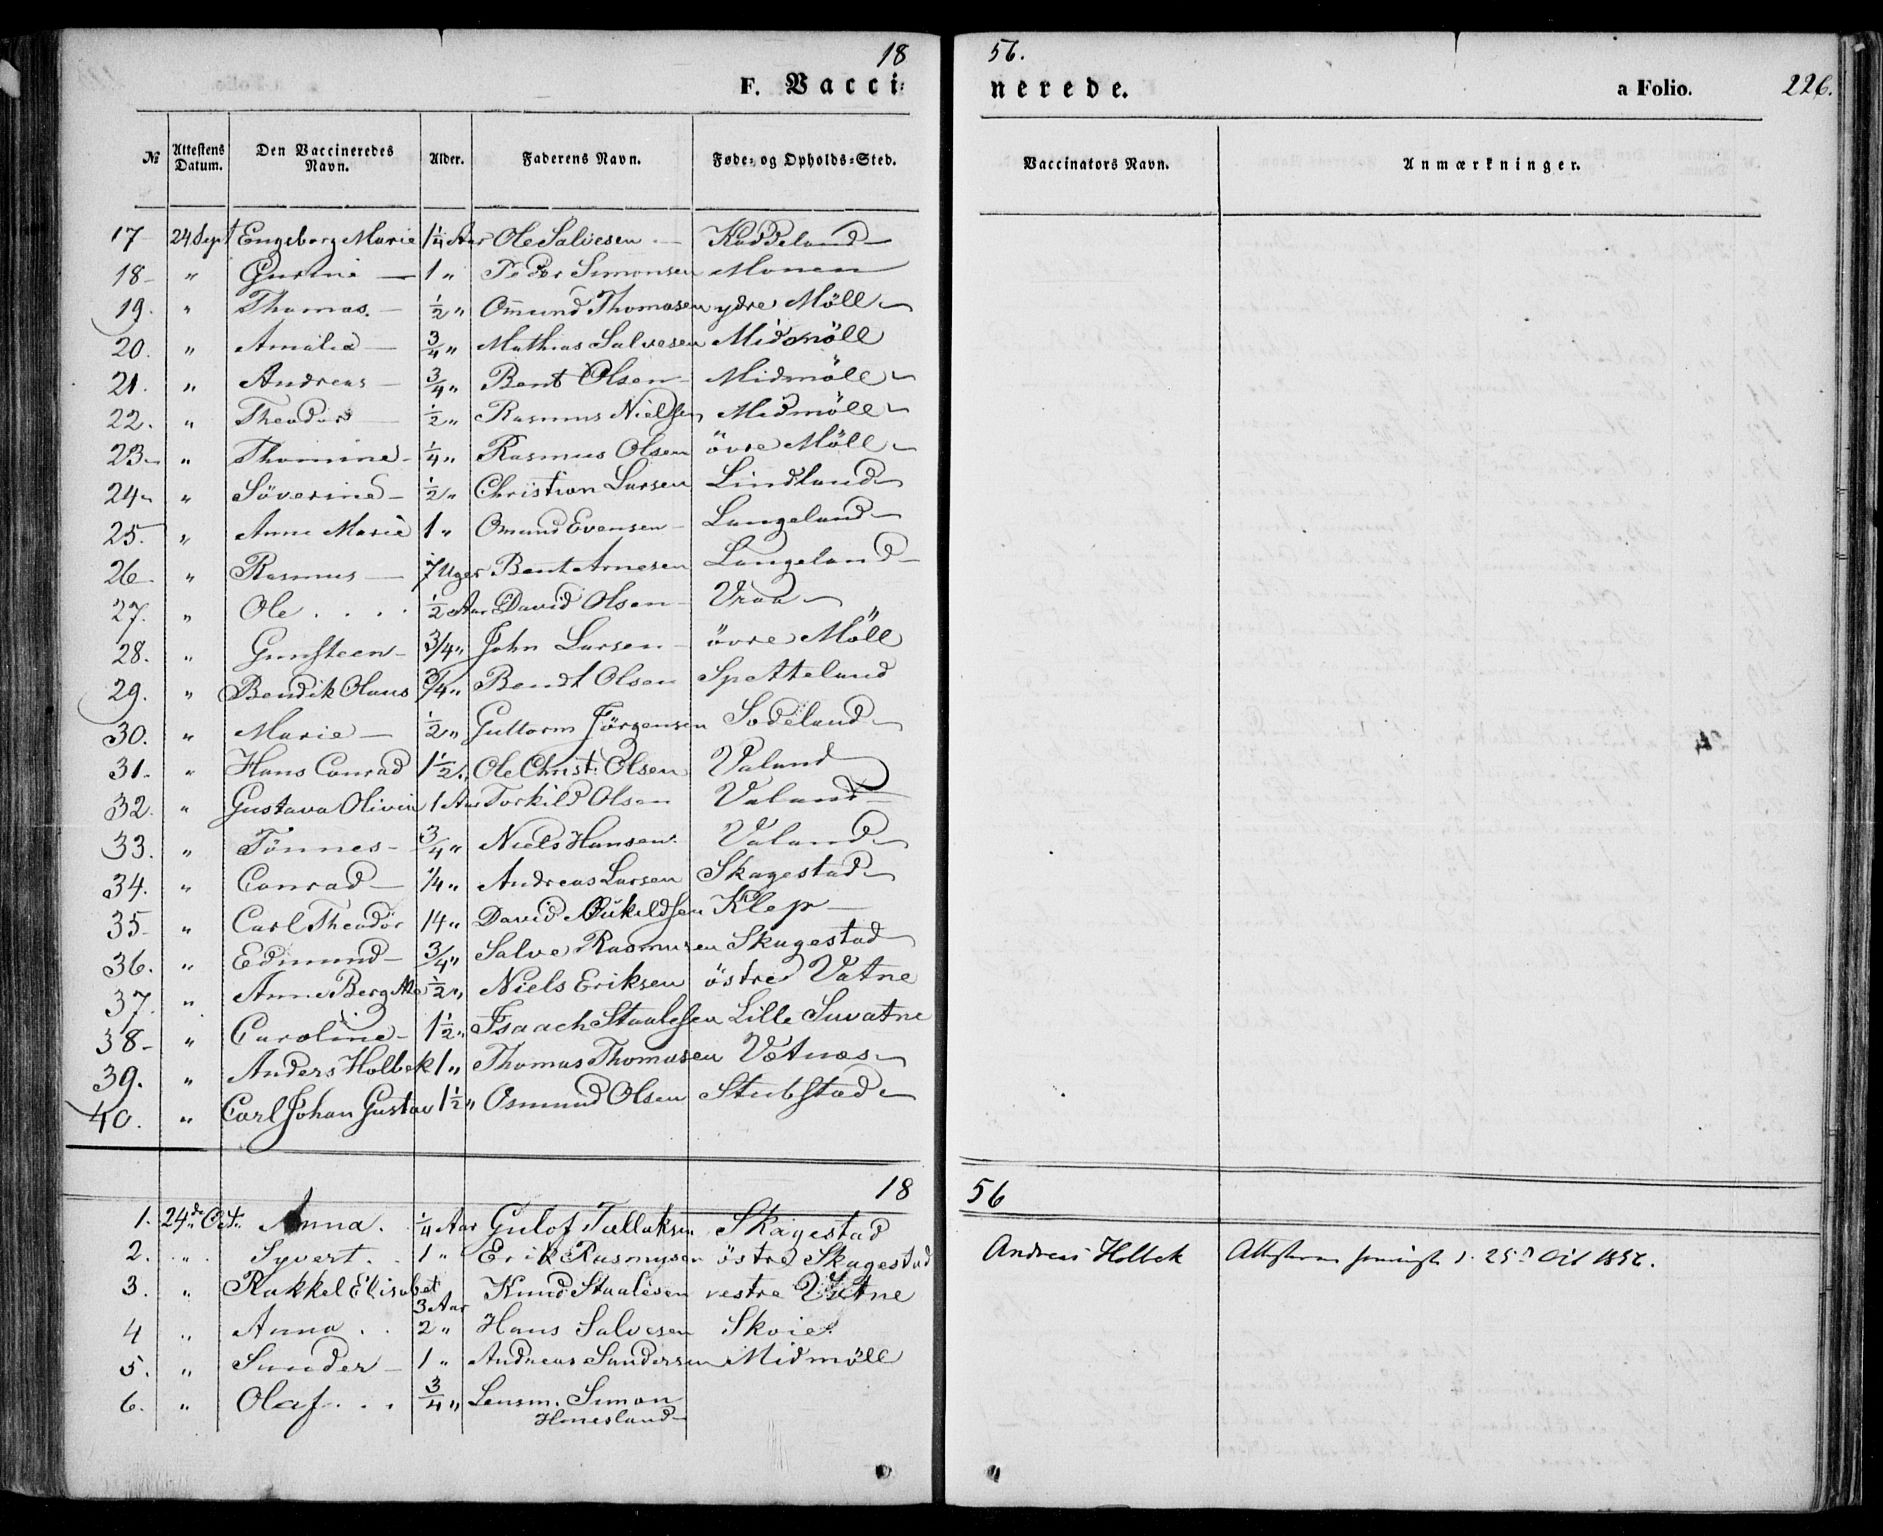 18 56.
F. Vacci- nerede. a Folio. 226.
№ Attestens Datum. Den Vaccineredes Navn. Alder. Faderens Navn. Føde- og Opholds-Sted. Vaccinators Navn. Anmærkninger.
17 24 Sept Engeborg Marie 1¼ Aar Ole Salvesen Kaddeland
18 " Gurine 1 " Peder Simonsen Monen
19. " Thomas. ½ " Omund Thomasen ydre Möll
20. " Amalia ¾ " Mathias Salvesen Midmöll
21. " Andreas ¾ " Bent Olsen Midmöll
22. " Theodor ½ " Rasmus Nielsen Midmöll
23 " Thomine ¼ " Rasmus Olsen övre Möll
24 " Söverine ½ " Christian Larsen Lindland
25. " Anne Marie 1 " Omund Evensen Langeland
26 " Rasmus 7 Uger Bent Arnesen Langeland
27. " Ole . . . . ½ Aar David Olsen Vraa
28. " Gunsteen 3/4 " John Larsen övre Möll
29. " Bendik Olaus 3/4 " Bendt Olsen Spetteland
30. " Marie ½ " Guttorm Jörgensen Sodeland
31. " Hans Conrad 1½ " Ole Christ: Olsen Valand
32. " Gustava Olivia 1 Aar Torkild Olsen Valand
33. " Tönnes ¾ " Niels Hansen. Valand
34. " Conrad 1/4 " Andreas Larsen Skagestad
35 " Carl Theodor 14 " David Klep
36. " Edmund 3/4 " Salve Rasmusen Skagestad
37. " Anne Berg ½ " Niels Eriksen östre Vatne
38 " Caroline 1½ " Isaach Staalesen Lille Suvatne
39. " Anders Holbek 1 " Thomas Thomasen Vatnæs
40. " Carl Johan Gustav 1½ " Osmund Olsen Stubstad
18 56
1. 24de Oct: Anna. ¼ Aar Gulof Tallaksen Skagestad
2. " Syvert. . 1 " Erik Rasmusen östre Skagestad Andreas Holbek 25d Oct 1856.
3. " Rakkel Elisabet 3 Aar Knud Staalesen vestre Vatne
4 " Anna . . 2 " Hans Salvesen Skoie.
5. " Sunder 1 " Andreas Sundersen Midmöll
6. " Olaf . . . ¾ " Lensm. Simon
Homesland